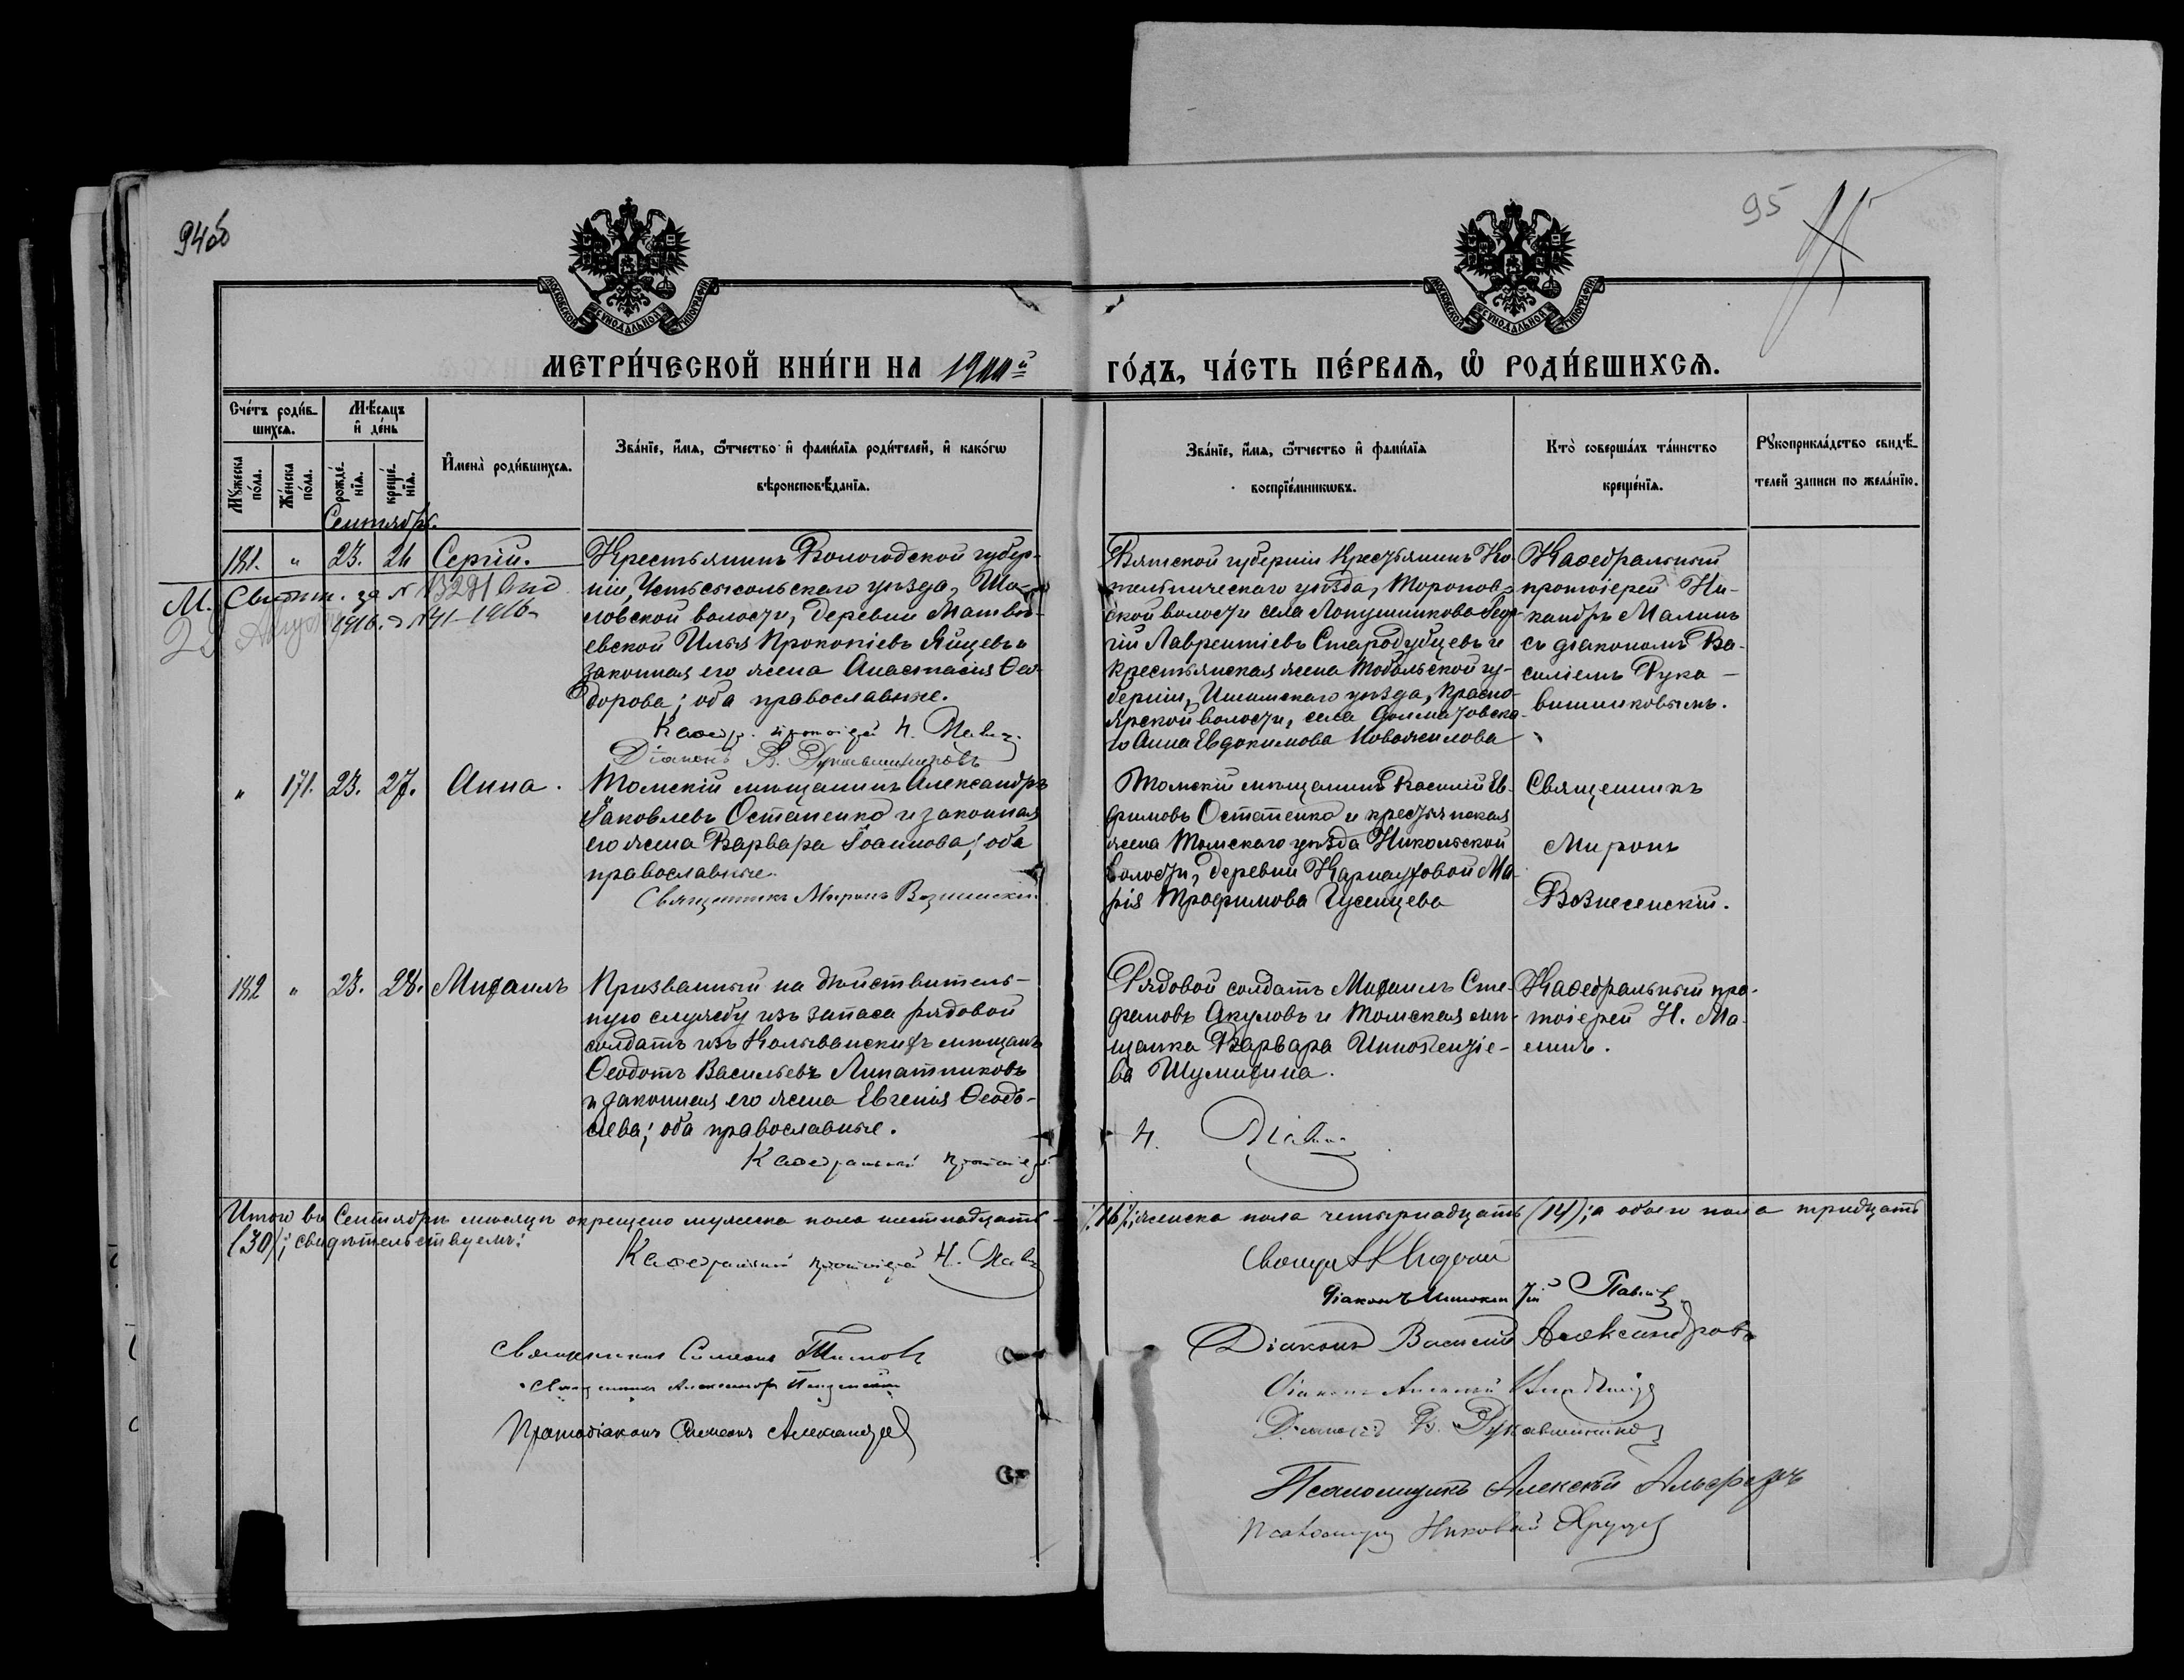 94об
95
МЕТРИ́ЧЕСКОЙ КНИ́ГИ НА 1900й
ГО́ДЪ, ЧА́СТЬ ПЕ́РВАѦ, Ѿ РОДИ́ВШИХСѦ.
Сче́тъ роди́вшихсѧ.
Мѣ́сѧцъ и҆ де́нь
И҆мена̀ роди́вшихсѧ.
Зва́нїе, и҆́мѧ, ѻ҆́тчество и҆ фами́лїѧ роди́телей, и҆ како́гѡ
вѣроисповѣ́данїѧ.
Зва́нїе, и҆́мѧ, ѻ҆́тчество и҆ фами́лїѧ
воспрїе́мникѡвъ.
Кто̀ соверша́лъ та́инство
креще́нїѧ.
Рꙋкоприкла́дство свидѣ́-
телей записи по жела́нїю.
Мꙋ́жеска по́ла.
Же́нска по́ла.
рожде́нїѧ.
креще́нїѧ.
Сентябрь.
181. " 23. 26 Сергій.
Крестьянинъ Вологодской губер-
ніи, Устьсысольскаго уѣзда,
ловской волости, деревни Матвѣ-
евской Илья Прокопіевъ Яйцевъ и
законная его жена Анастасія Ѳео-
дорова; оба православные.
Каѳедр. протоіерей Н. Малин
Діаконъ В. Рукавишниковъ
Вятской губерніи крестьянинъ Ко-
тельническаго уѣзда, Торопов-
ской волости села Лопушниково Сер-
гій Лаврентіевъ Стародубцевъ и
крестьянская жена Тобольской гу-
берніи, Ишимскаго уѣзда, Красно-
ярской волости, села Долматовска-
го Анна Евдокимова Новожилова
Каѳедральный
протоіерей Ни-
кандръ Малинъ
съ діакономъ Ва-
силіемъ Рука-
вишниковымъ.
М. Свидѣт. за № 13291
1916.
" 171. 23. 27. Анна.
Томскій мѣщанинъ Александръ
Яковлевъ Остапенко и законная
его жена Варвара Іоаннова; оба
православные.
Священникъ Миронъ Вознесенскій
Томскій мѣщанинъ Василій Еѳ-
фимовъ Остапенко и крестьянская
жена Томскаго уѣзда Никольской
волости, деревни Карнауховой Ма-
рія Трофимова Гусельцева
Священникъ
Миронъ
Вознесенскій.
182 " 23. 28. Михаилъ
Призванный на дѣйствитель-
ную службу изъ запаса рядовой
солдатъ изъ Колыванскихъ мѣщанъ
Ѳеодотъ Васильевъ Липатниковъ
и законная его жена Евгенія Ѳеодо-
сіева; оба православные.
Каѳедральный протоіерей
Рядовой солдатъ Михаилъ Сте-
фановъ Акуловъ и Томская мѣ-
щанка Варвара Иннокентіе-
ва Шумихина.
Н. Малин
Каѳедральный про-
тоіерей Н. Ма-
линъ.
Итого въ Сентябрѣ мѣсяцѣ окрещено мужеска пола шестнадцать
(16); женска пола четырнадцать (14); а обоего пола тридцать
(30); свидѣтельствуемъ:
Каѳедральный протоіерей Н. Малин
Діаконъ Иннокентій
Священникъ Симеонъ Титовъ
Діаконъ Василій Александровъ
Священникъ Александръ
Протодіаконъ Симеонъ Александровъ
Діаконъ В. Рукавишников
Псаломщикъ Алексѣй
Псаломщик Николай